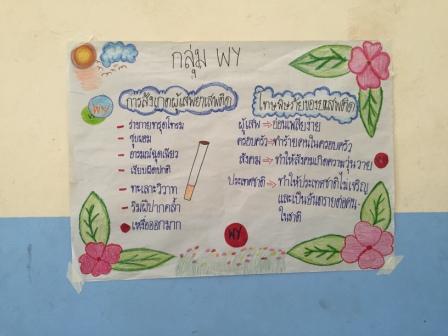 กลุ่ม WY
WY
การสังเกตผู้เสพยาเสพติด
- ร่างกายทรุดโทรม
- ซูบผอม
- อารมณ์ฉุนเฉียว
- เงียบผิดปกติ
- ทะเลาะวิวาท
- ริมฝีปากคล้ำ
เหงื่อออกมาก
โทษพิษภัยของยาเสพติด
ผู้เสพ → อ่อนเพลียง่าย
ครอบครัว → ทำร้ายคนในครอบครัว
สังคม → ทำให้สังคมเกิดความวุ่นวาย
ประเทศชาติ → ทำให้ประเทศชาติไม่เจริญ
และเป็นอันตรายต่อคน
ในชาติ
WY